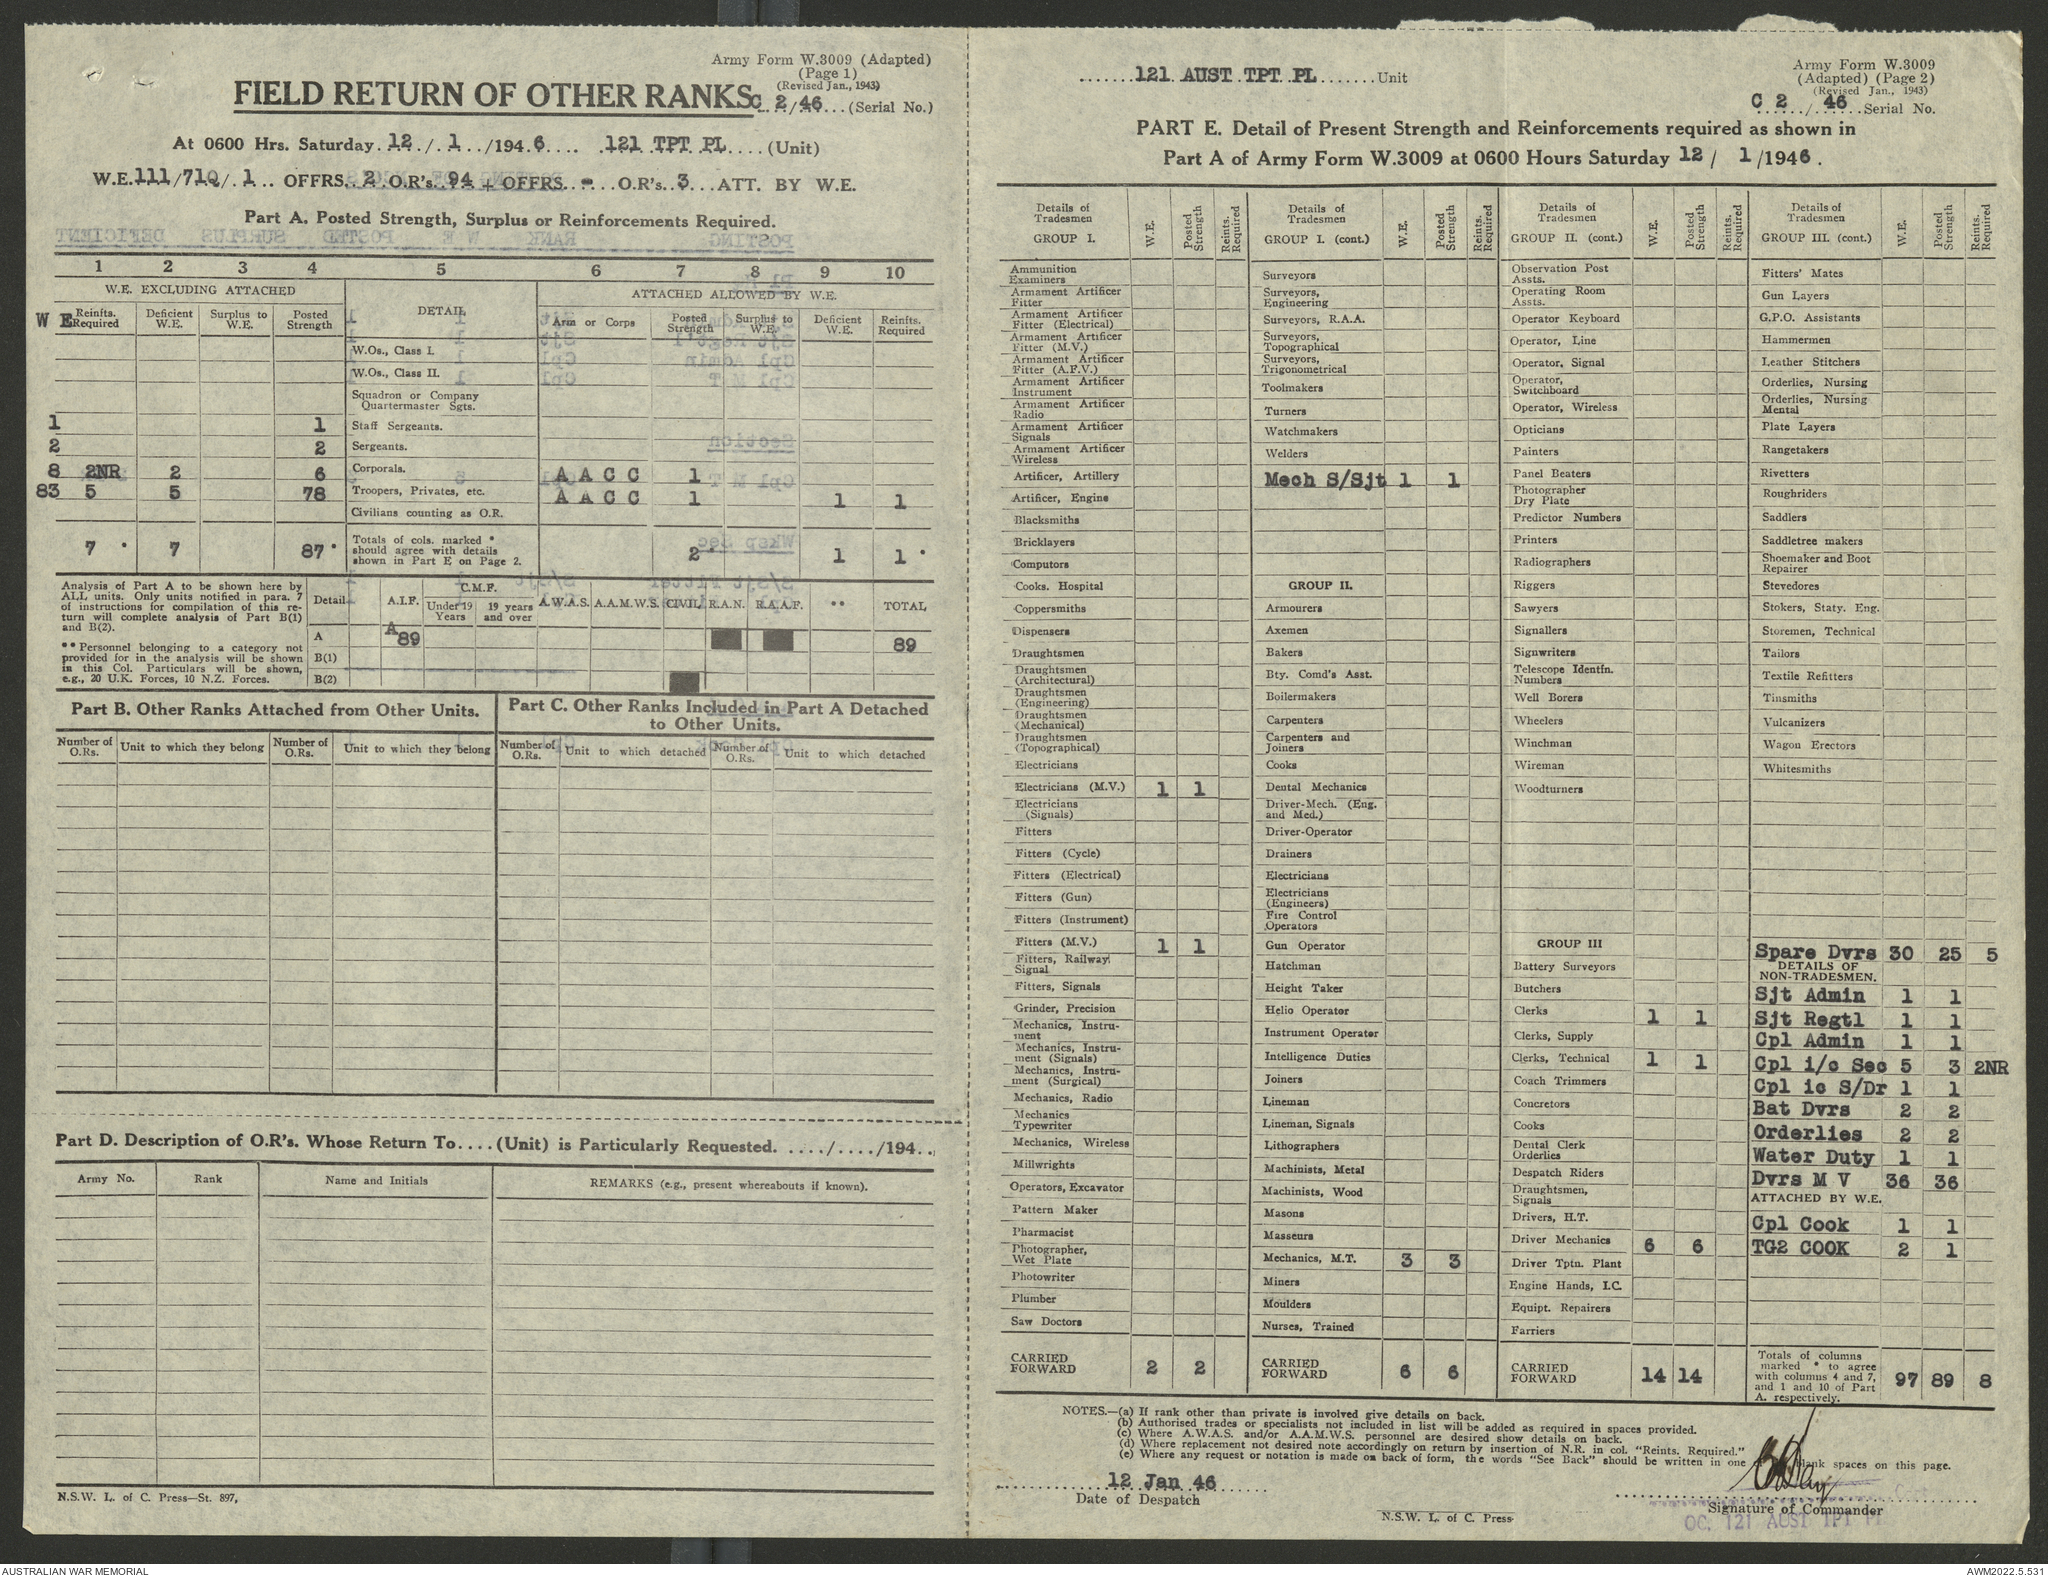 Army Form W.3009 (Adapted)
(Page 1)
(Revised Jan., 1943)
FIELD RETURN OF OTHER RANKS C 2/46 (Serial No.)
At 0600 Hrs. Saturday 12/ 1 /1946 .... 121 TPT PL ....(Unit)
W.E. 111/71Q/ 1 .. OFFRS. 2 O.R's. 94 + OFFRS. - O.R's. 3 ATT. BY W.E.
Part A. Posted Strength, Surplus or Reinforcements Required.
1 2 3 4 5 6 7 8 9 10
W.E. EXCLUDING ATTACHED DETAIL ATTACHED ALLOWED BY W.E.
W E Reinfts. Required Deficient W.E. Surplus to W.E. Posted Strength Arm or Corps Posted Strength Surplus to W.E. Deficient W.E. Reinfts. Required
W.Os., Class I.
W.Os., Class II.
Squadron or Company Quartermaster Sgts.
1 1 Staff Sergeants.
2 2 Sergeants.
8 2NR 2 6 Corporals. A A C C 1
83 5 5 78 Troopers, Privates, etc. A A C C 1 1 1
Civilians counting as O.R.
7 * 7 87 * Totals of cols. marked * should agree with details shown in Part E on Page 2. 2 * 1 1 *
Analysis of Part A to be shown here by
ALL units. Only units notified in para. 7
of instructions for compilation of this re-
turn will complete analysis of Part B(1)
and B(2).
** Personnel belonging to a category not
provided for in the analysis will be shown
in this Col. Particulars will be shown,
e.g., 20 U.K. Forces, 10 N.Z. Forces.
Detail A.I.F. C.M.F. Under 19 Years 19 years and over A.W.A.S. A.A.M.W.S. CIVIL R.A.N. R.A.A.F. ** TOTAL
A A89 89
B(1)
B(2)
Part B. Other Ranks Attached from Other Units.
Number of O.Rs. Unit to which they belong Number of O.Rs. Unit to which they belong
Part C. Other Ranks Included in Part A Detached to Other Units.
Number of O.Rs. Unit to which detached Number of O.Rs. Unit to which detached
Part D. Description of O.R's. Whose Return To....(Unit) is Particularly Requested. ..../..../194..
Army No. Rank Name and Initials REMARKS (e.g., present whereabouts if known).
N.S.W. L. of C. Press—St. 897,
.......121 AUST TPT PL.......Unit
Army Form W.3009
(Adapted) (Page 2)
(Revised Jan., 1943)
C 2 / 46 Serial No.
PART E. Detail of Present Strength and Reinforcements required as shown in
Part A of Army Form W.3009 at 0600 Hours Saturday 12/ 1/1946.
Details of Tradesmen GROUP I. W.E. Posted Strength Reints. Required
Ammunition Examiners
Armament Artificer Fitter
Armament Artificer Fitter (Electrical)
Armament Artificer Fitter (M.V.)
Armament Artificer Fitter (A.F.V.)
Armament Artificer Instrument
Armament Artificer Radio
Armament Artificer Signals
Armament Artificer Wireless
Artificer, Artillery
Artificer, Engine
Blacksmiths
Bricklayers
Computors
Cooks. Hospital
Coppersmiths
Dispensers
Draughtsmen
Draughtsmen (Architectural)
Draughtsmen (Engineering)
Draughtsmen (Mechanical)
Draughtsmen (Topographical)
Electricians
Electricians (M.V.) 1 1
Electricians (Signals)
Fitters
Fitters (Cycle)
Fitters (Electrical)
Fitters (Gun)
Fitters (Instrument)
Fitters (M.V.) 1 1
Fitters, Railway Signal
Fitters, Signals
Grinder, Precision
Mechanics, Instru-ment
Mechanics, Instru-ment (Signals)
Mechanics, Instru-ment (Surgical)
Mechanics, Radio
Mechanics Typewriter
Mechanics, Wireless
Millwrights
Operators, Excavator
Pattern Maker
Pharmacist
Photographer, Wet Plate
Photowriter
Plumber
Saw Doctors
CARRIED FORWARD 2 2
Details of Tradesmen GROUP I. (cont.) W.E. Posted Strength Reints. Required
Surveyors
Surveyors, Engineering
Surveyors, R.A.A.
Surveyors, Topographical
Surveyors, Trigonometrical
Toolmakers
Turners
Watchmakers
Welders
Mech S/Sjt 1 1
GROUP II.
Armourers
Axemen
Bakers
Bty. Comd's Asst.
Boilermakers
Carpenters
Carpenters and Joiners
Cooks
Dental Mechanics
Driver-Mech. (Eng. and Med.)
Driver-Operator
Drainers
Electricians
Electricians (Engineers)
Fire Control Operators
Gun Operator
Hatchman
Height Taker
Helio Operator
Instrument Operator
Intelligence Duties
Joiners
Lineman
Lineman, Signals
Lithographers
Machinists, Metal
Machinists, Wood
Masons
Masseurs
Mechanics, M.T. 3 3
Miners
Moulders
Nurses, Trained
CARRIED FORWARD 6 6
Details of Tradesmen GROUP II. (cont.) W.E. Posted Strength Reints. Required
Observation Post Assts.
Operating Room Assts.
Operator Keyboard
Operator, Line
Operator, Signal
Operator, Switchboard
Operator, Wireless
Opticians
Painters
Panel Beaters
Photographer Dry Plate
Predictor Numbers
Printers
Radiographers
Riggers
Sawyers
Signallers
Signwriters
Telescope Identfn. Numbers
Well Borers
Wheelers
Winchman
Wireman
Woodturners
GROUP III
Battery Surveyors
Butchers
Clerks 1 1
Clerks, Supply
Clerks, Technical 1 1
Coach Trimmers
Concretors
Cooks
Dental Clerk Orderlies
Despatch Riders
Draughtsmen, Signals
Drivers, H.T.
Driver Mechanics 6 6
Driver Tptn. Plant
Engine Hands, I.C.
Equipt. Repairers
Farriers
CARRIED FORWARD 14 14
Details of Tradesmen GROUP III. (cont.) W.E. Posted Strength Reints. Required
Fitters' Mates
Gun Layers
G.P.O. Assistants
Hammermen
Leather Stitchers
Orderlies, Nursing
Orderlies, Nursing Mental
Plate Layers
Rangetakers
Rivetters
Roughriders
Saddlers
Saddletree makers
Shoemaker and Boot Repairer
Stevedores
Stokers, Staty. Eng.
Storemen, Technical
Tailors
Textile Refitters
Tinsmiths
Vulcanizers
Wagon Erectors
Whitesmiths
Spare Dvrs 30 25 5
DETAILS OF NON-TRADESMEN.
Sjt Admin 1 1
Sjt Regtl 1 1
Cpl Admin 1 1
Cpl i/c Sec 5 3 2NR
Cpl ic S/Dr 1 1
Bat Dvrs 2 2
Orderlies 2 2
Water Duty 1 1
Dvrs M V 36 36
ATTACHED BY W.E.
Cpl Cook 1 1
TG2 COOK 2 1
Totals of columns marked * to agree with columns 4 and 7, and 1 and 10 of Part A. respectively. 97 89 8
NOTES.—(a) If rank other than private is involved give details on back.
(b) Authorised trades or specialists not included in list will be added as required in spaces provided.
(c) Where A.W.A.S. and/or A.A.M.W.S. personnel are desired show details on back.
(d) Where replacement not desired note accordingly on return by insertion of N.R. in col. "Reints. Required."
(e) Where any request or notation is made on back of form, the words "See Back" should be written in one blank spaces on this page.
12 Jan 46
Date of Despatch
Signature of Commander
OC. 121 AUST TPT Pl
N.S.W. L. of C. Press
AUSTRALIAN WAR MEMORIAL
AWM2022.5.531